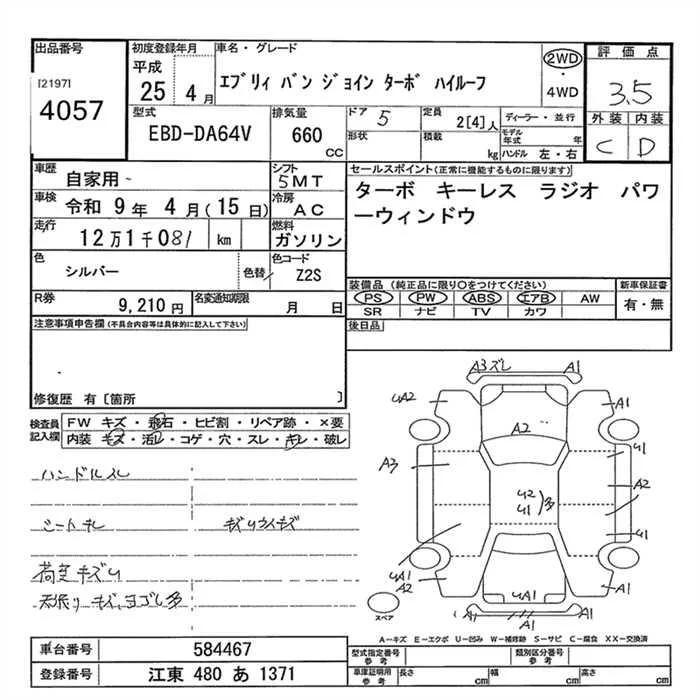 出品番号
[2197]
4057
初度登録年月
平成
25 4月
車名・グレード
エブリィ バン ジョイン ターボ ハイルーフ
2WD
・
4WD
評価点
3.5
外装 内装
C D
型式
EBD-DA64V
排気量
660
CC
ドア 5
定員 2[4]人
ディーラー・並行
形状
積載 kg
モデル年式 年
ハンドル 左・右
車歴 自家用
シフト 5MT
車検 令和 9年 4月(15日)
冷房 AC
走行 12万1千081 km
燃料 ガソリン
色 シルバー
色替
色コード Z2S
R券 9,210円
名変通知期限 月 日
セールスポイント(正常に機能するものに限ります)
ターボ キーレス ラジオ パワ
ーウィンドウ
装備品 (純正品に限り○をつけてください)
新車保証書
PS PW ABS エアB AW
有・無
SR ナビ TV カワ
後日品
注意事項申告欄 (不具合内容等は具体的に記入して下さい)
修復歴 有 [箇所 ]
検査員
記入欄
FW キズ・飛石・ヒビ割・リペア跡・×要
内装 キズ・汚レ・コゲ・穴・スレ・キレ・破レ
ハンドルスレ
シートキレ
荷室キズ
天張りキズ、ヨゴレ多
A3ズレ A1
A2
A1
A2
A3
A2
A1
多
A1
スペア
A-キズ E-エクボ U-凹み W-補修跡 S-サビ C-腐食 XX-交換済
車台番号 584467
登録番号 江東 480 あ 1371
型式指定番号
参考
類別区分番号
参考
車庫証明用
参考
長さ cm
幅 cm
高さ cm